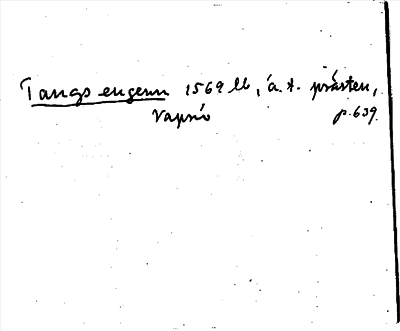 Tangs engenn 1569 ll, á.t. prästen,
Vapnö p.639.